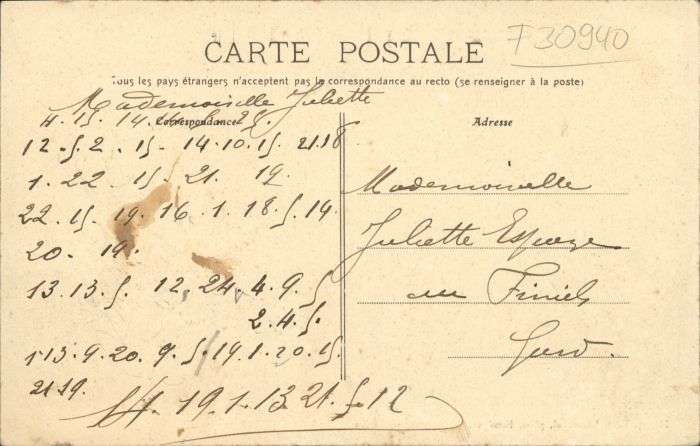 F30940
CARTE POSTALE
Tous les pays étrangers n'acceptent pas la correspondance au recto (se renseigner à la poste)
Mademoiselle Juliette
Correspondance
Adresse
12. 5. 2. 15. 14. 10. 15. 21. 18
1. 22. 15. 21. 19.
22. 15. 19. 16. 1. 18. 5. 14.
20. 19.
13. 13. 5. 12. 24. 4. 9. 5
2. 4. 5.
13. 9. 20. 9. 5. 19. 1. 20. 15.
21. 19.
19. 1. 13. 21. 5. 12
Mademoiselle
Juliette
au Finiels
Gard.